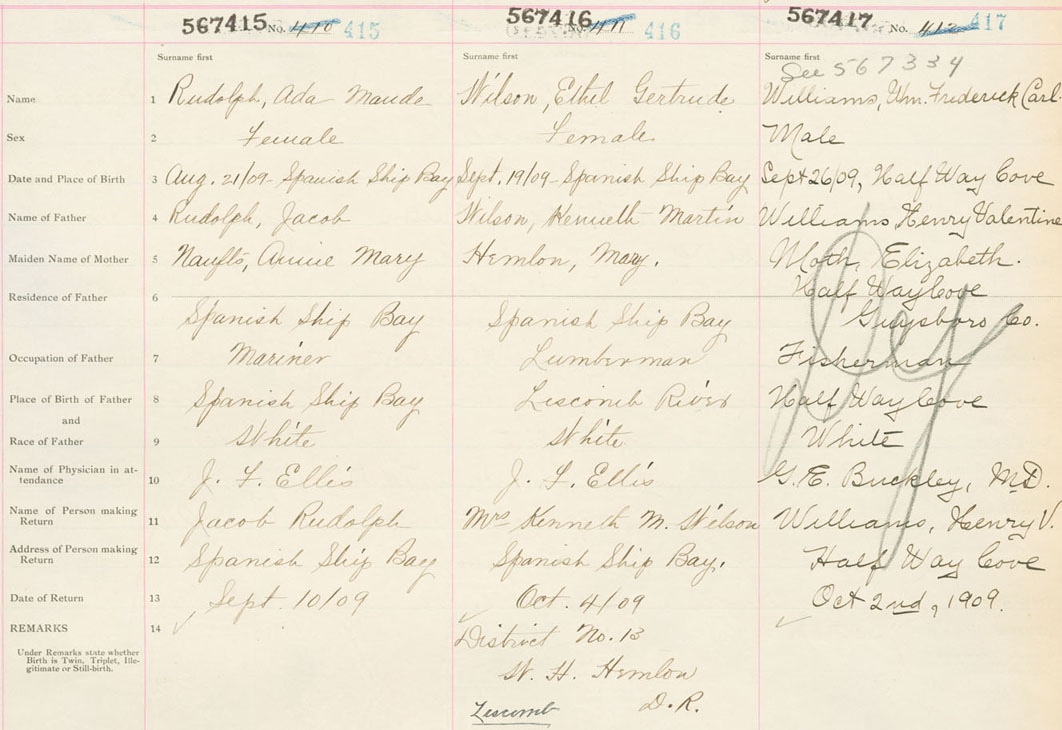 567415 No. 410 415
567416 No. 411 416
567417 No. 412 417
Surname first
Surname first
Surname first
See 567334
Name 1 Rudolph, Ada Maude Wilson, Ethel Gertrude Williams, Wm. Frederick Carl.
Sex 2 Female Female Male
Date and Place of Birth 3 Aug. 21/09 - Spanish Ship Bay Sept. 19/09 - Spanish Ship Bay Sept 26/09, Half Way Cove
Name of Father 4 Rudolph, Jacob Wilson, Kenneth Martin Williams Henry Valentine
Maiden Name of Mother 5 Annie Mary Hemlon, Mary. Elizabeth.
Residence of Father 6 Half Way Cove
Spanish Ship Bay Spanish Ship Bay Guysboro Co.
Occupation of Father 7 Mariner Lumberman Fisherman
Place of Birth of Father 8 Spanish Ship Bay Liscomb River Half Way Cove
and
Race of Father 9 White White White
Name of Physician in at-
tendance 10 J. F. Ellis J. F. Ellis G. E. Buckley, M.D.
Name of Person making
Return 11 Jacob Rudolph Mrs Kenneth M. Wilson Williams, Henry V.
Address of Person making
Return 12 Spanish Ship Bay Spanish Ship Bay. Half Way Cove
Date of Return 13 Sept. 10/09 Oct. 4/09 Oct 2nd, 1909.
REMARKS 14 District No. 13
Under Remarks state whether
Birth is Twin, Triplet, Ille-
gitimate or Still-birth.
W. H. Hemlon
D. R.
Liscomb